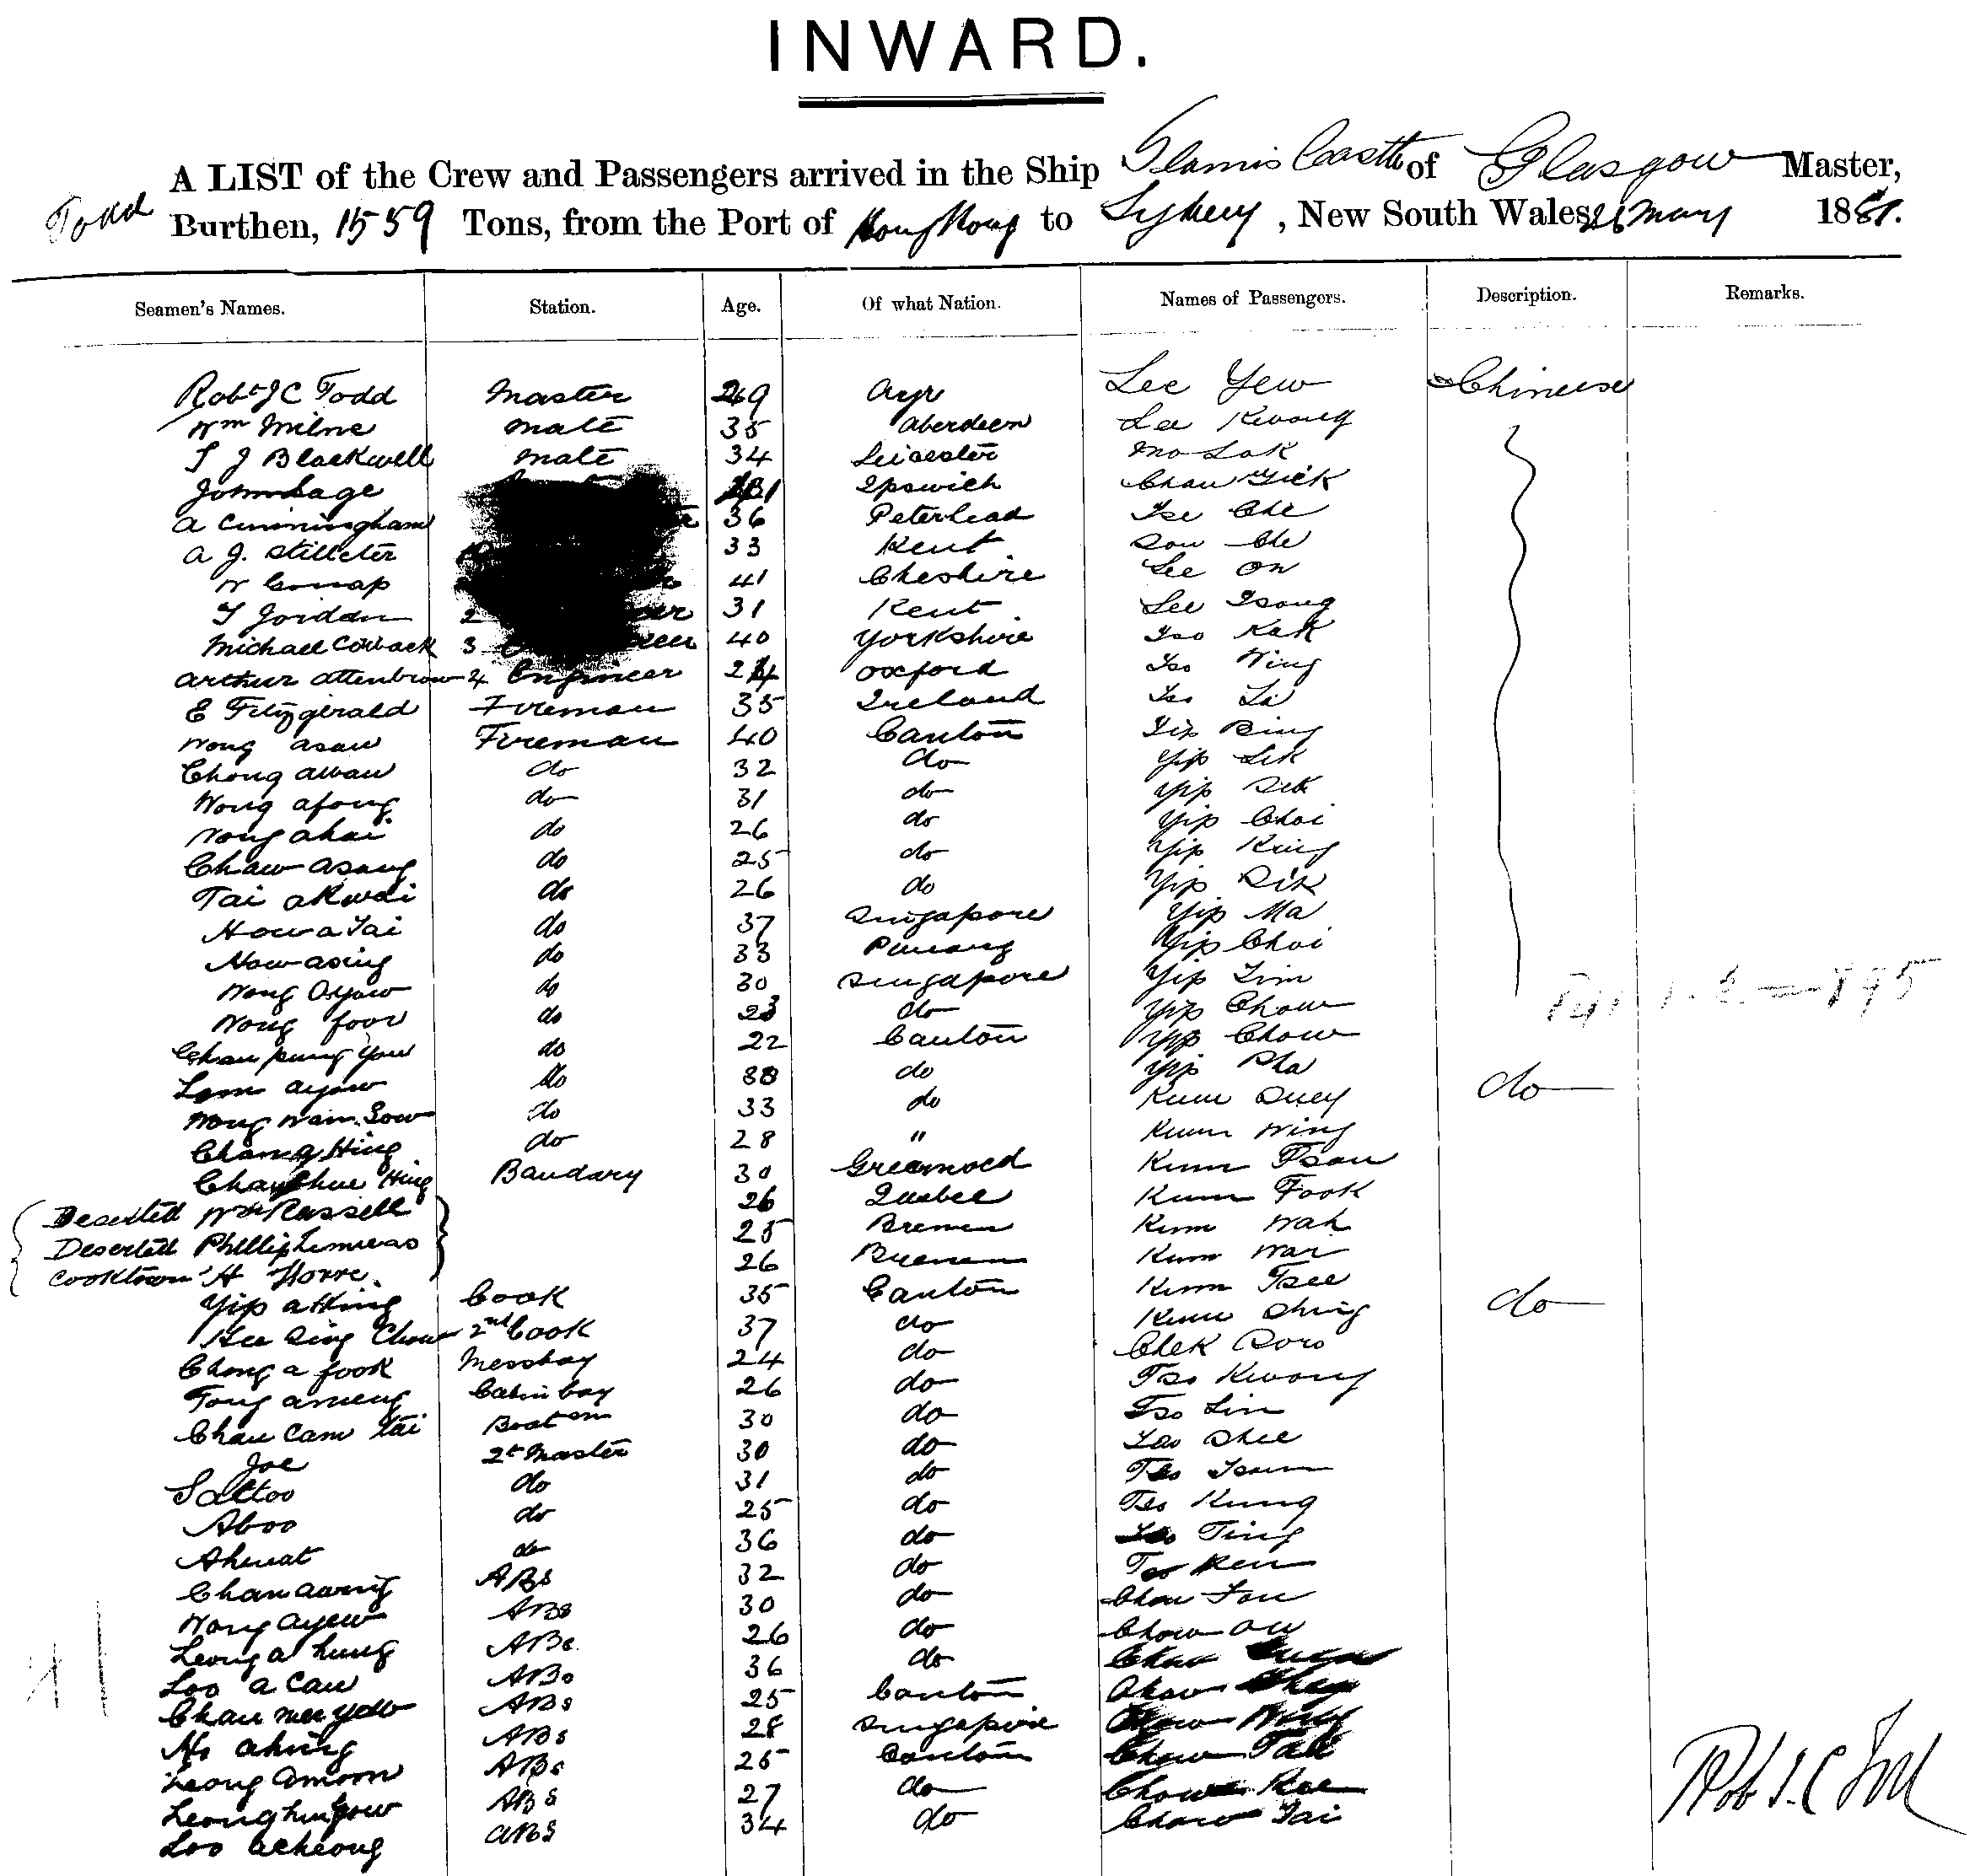 INWARD.
A LIST of the Crew and Passengers arrived in the Ship Glamis Castle of Glasgow Master,
Todd Burthen, 1559 Tons, from the Port of Hong Kong to Sydney, New South Wales 26 May 1881.
Seamen's Names. Station. Age. Of what Nation. Names of Passengers. Description. Remarks.
Robt J C Todd Master 49 Ayr Lee Yew Chinese
Wm Milne Mate 35 Aberdeen Lee Kwong
T J Blackwell Mate 34 Leicester Mo Lok
John Sage Ipswich Chau Yick
A Cunningham 36 Peterhead Tse Che
A J. Stilleter 33 Kent Sow Che
W 41 Cheshire Lee On
T Jordan 2 31 Kent Lee Tsong
Michael Corback 3 40 Yorkshire Tso Kak
Arthur Attenbrow 4 Engineer 24 Oxford Tso Wing
E Fitzgerald Fireman 35 Ireland Tso Li
Wong Asau Fireman 40 Canton Yip Bing
Chong Awau do 32 do Yip Lik
Wong Afong do 31 do Yip Sik
Wong Ahai do 26 do Yip Choi
Chaw Asang do 25 do Yip King
Tai Akwai do 26 do Yip Sik
How a Tai do 37 Singapore Yip Ma
Now asing do 33 Pinang Yip Choi
Wong Ayow do 30 Singapore Yip Tim
Wong foov do 23 do Yip Chow
Chau pung You do 22 Canton Yip Chow
Lam Ayow do 38 do Yip Sha do
Wong Wam Sow do 33 do Kum Suey
Chang Hing do 28 " Kum Wing
Chay Chue Hing Baudary 30 Greenock Kum Tsou
Deserted Wm Russell 26 Quebec Kum Fook
Deserted Phillip 25 Bremen Kum Wah
Cooktown H Horre 26 Bremen Kum War
Yip a Hing Cook 35 Canton Kum Tsee do
Hee Sing Chow 2nd Cook 37 do Kum Shing
Chong a fook Messboy 24 do Chek Soro
Tong ameng Cabin boy 26 do Tso Kwong
Chau Cam Tai Boatsm 30 do Tso Lin
Joe 2r Master 30 do Tso Shee
Sattoo do 31 do Tso Tsum
Aboo do 25 do Tso Kung
Ahmat do 36 do Tso Ting
Chan awing ABs 32 do Tso Ken
Wong ayew ABs 30 do Chow Fou
Leong a hung ABs 26 do Chow On
Loo a Cau ABs 36 do Chow
Chau mee yow ABs 25 Canton Chow
Ho ahing ABs 28 Singapore Chow
Leong Amoon ABs 25 Canton Chow Tak
Leong hup yow ABs 27 do Chow Kee
Loo acheong ABs 34 do Chow Tai
Rob J. C Todd